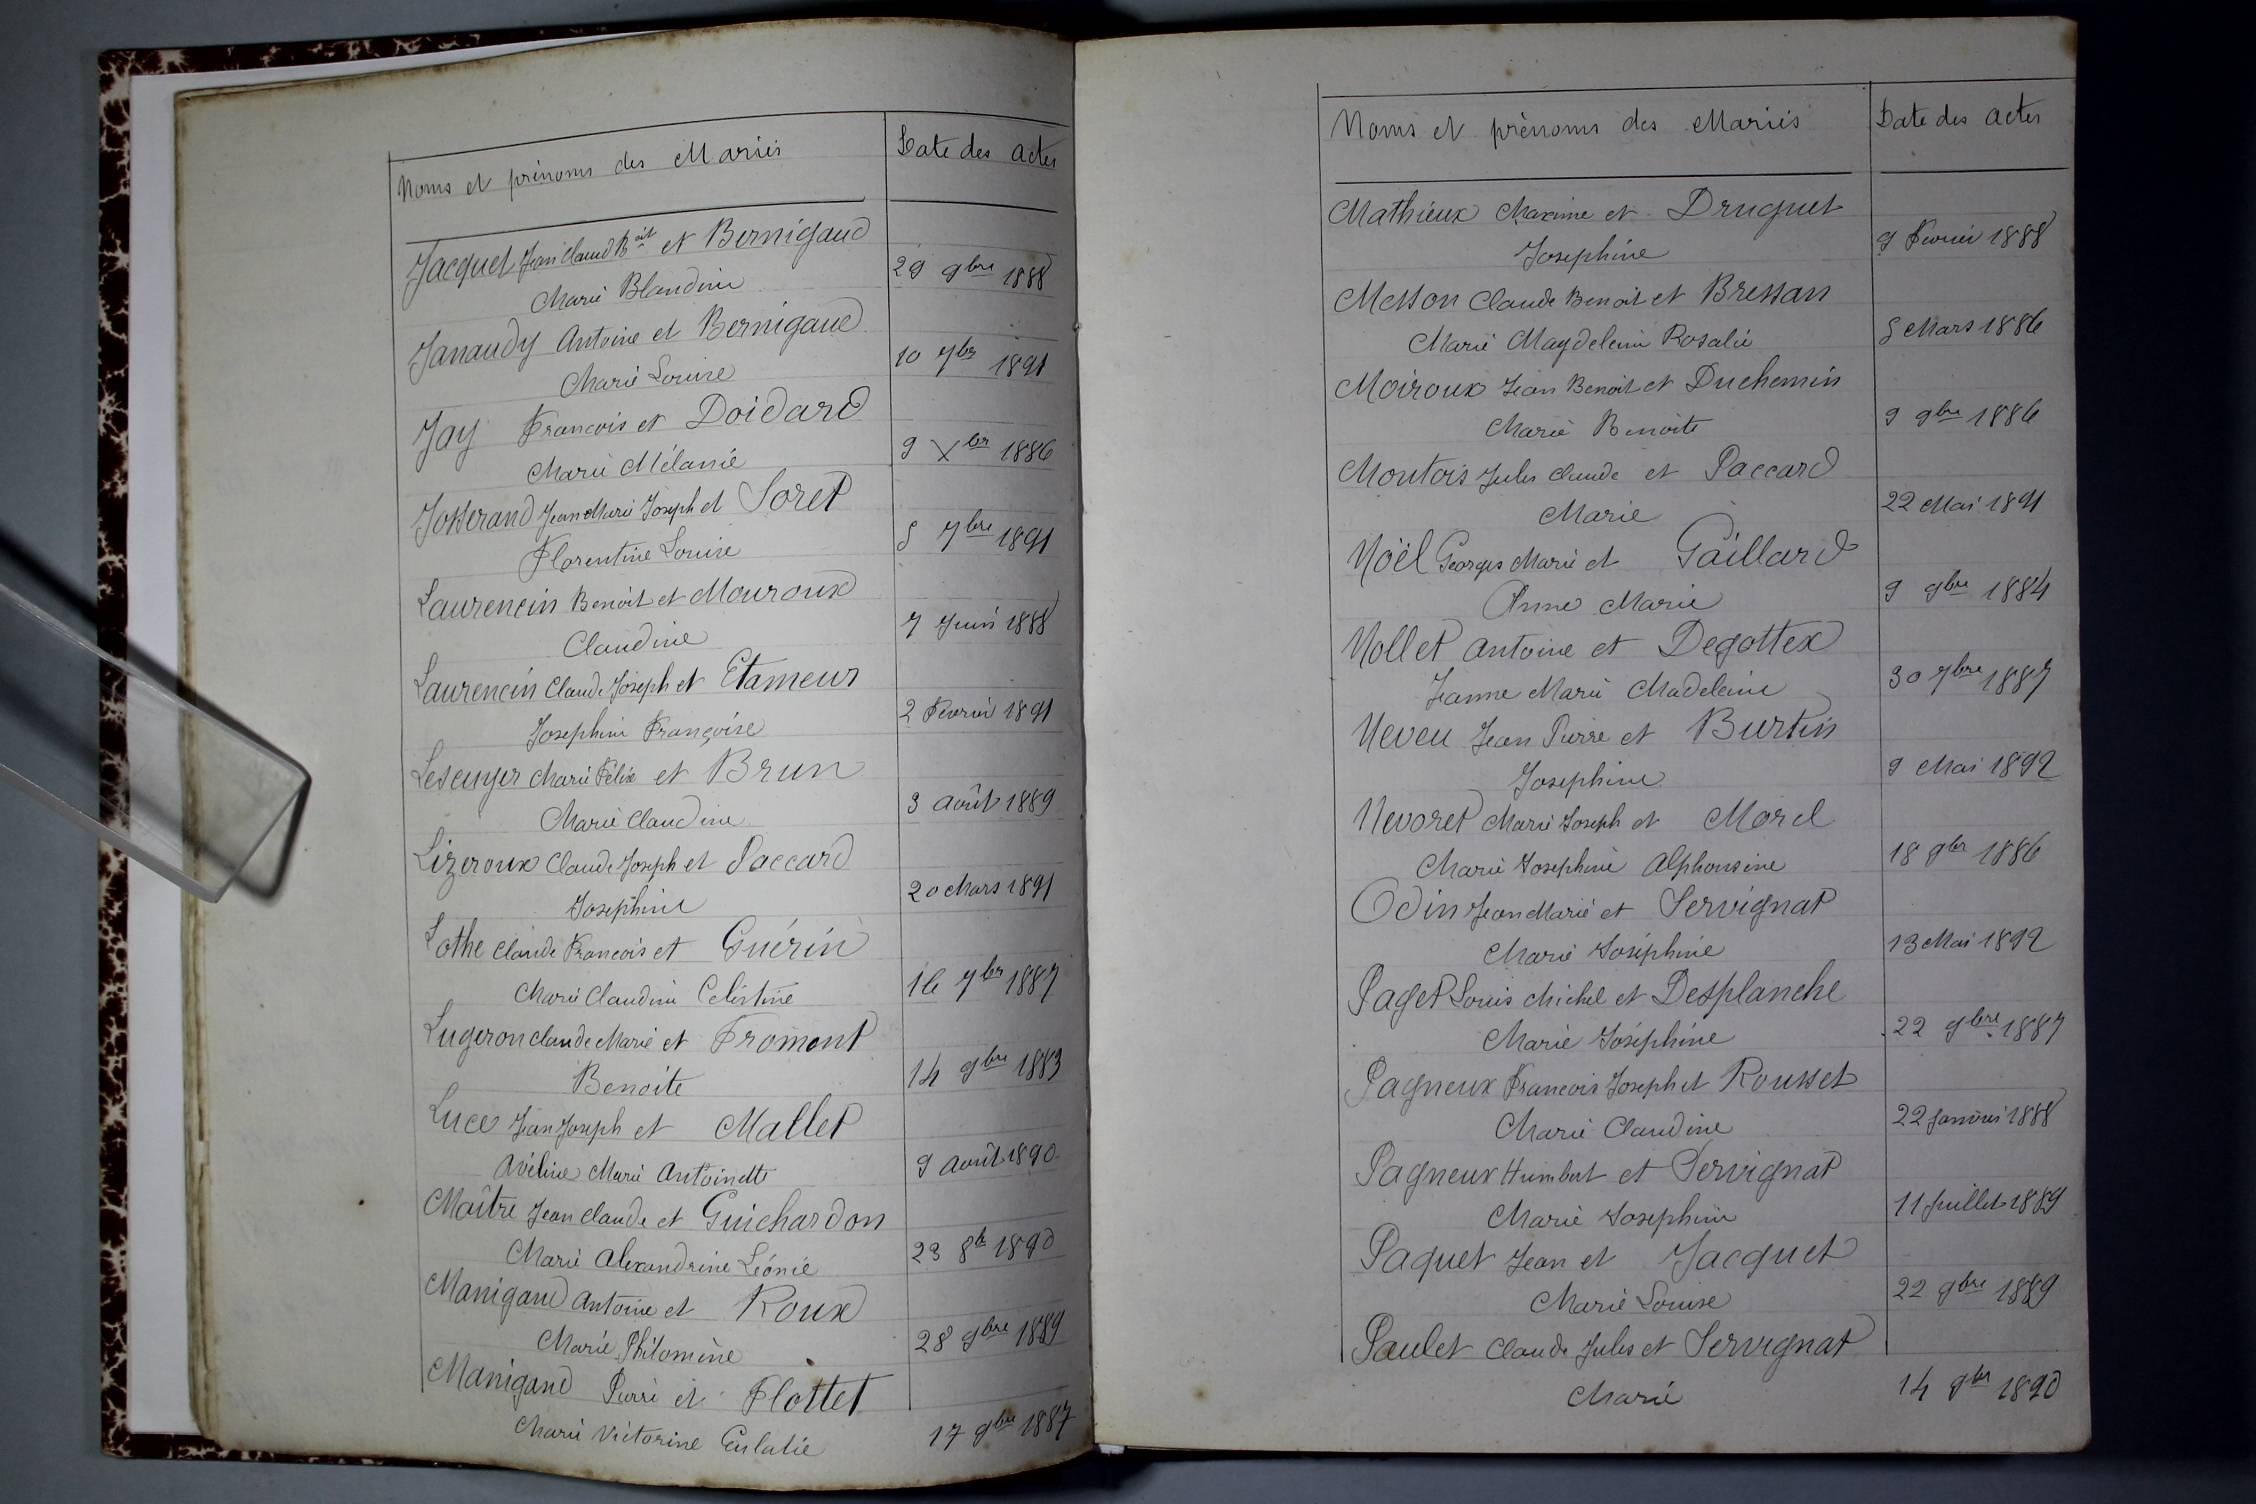 Noms et prénoms des Mariés
Date des actes
Jacquet Jean Claud Boit et Bernigaud
Marie Blandine
29 9bre 1888
Janaudy Antoine et Bernigaud
Marie Louise
10 7br 1891
Jay Francois et Doidard
Marie Mélanie
9 Xbr 1886
Josserand Jean Marie Joseph et Soret
Florentine Louise
5 7bre 1891
Laurencin Benoit et Mouroux
Claudine
7 Juin 1888
Laurencin Claude Joseph et Etameur
Josephine Françoise
2 Fevrier 1891
Lescuyer Marie Félix et Brun
Marie Claudine
3 Août 1889
Lizeroux Claude Joseph et Paccard
Josephine
20 Mars 1891
Lothe Claude Francois et Guérin
Marie Claudine Celestine
16 7br 1887
Lugeron Claude Marie et Froment
Benoite
14 9bre 1883
Luce Jean Joseph et Mallet
Avéline Marie Antoinette
9 Août 1890
Maître Jean Claude et Guichardon
Marie Alexandrine Léonie
23 8b 1890
Manigaud Antoine et Roux
Marie Philomène
28 9bre 1889
Manigand Pierre et Flottet
Marie Victorine Eulalie
17 9bre 1887
Noms et prénoms des Mariés
Date des actes
Mathieux Maxime et Druguet
Josephine
9 Fevrier 1888
Messon Claude Benoit et Bressan
Marie Magdeleine Rosalie
5 Mars 1886
Moiroux Jean Benoit et Duchemin
Marie Benoite
9 9bre 1886
Moutois Jules Claude et Paccard
Marie
22 Mai 1891
Noël Georges Marie et Gaillard
Anne Marie
9 9bre 1884
Nollet Antoine et Degottex
Jeanne Marie Madeleine
30 7bre 1887
Neveu Jean Pierre et Burtin
Josephine
9 Mai 1892
Nevoret Marie Joseph et Morel
Marie Josephine Alphonsine
18 9br 1886
Odin Jean Marie et Servignat
Marie Joséphine
13 Mai 1892
Paget Louis Michel et Desplanche
Marie Joséphine
22 9bre 1887
Pagneux Francois Joseph et Rousset
Marie Claudine
22 Janvier 1888
Pagneux Humbert et Servignat
Marie Josephine
11 Juillet 1889
Paquet Jean et Jacquet
Marie Louise
22 9bre 1889
Paulet Claude Jules et Servignat
Marie
14 9br 1890